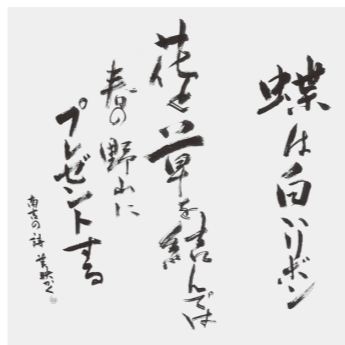 蝶は白いリボン
花と草を結んでは
春の野山に
プレゼントする
南吉の詩